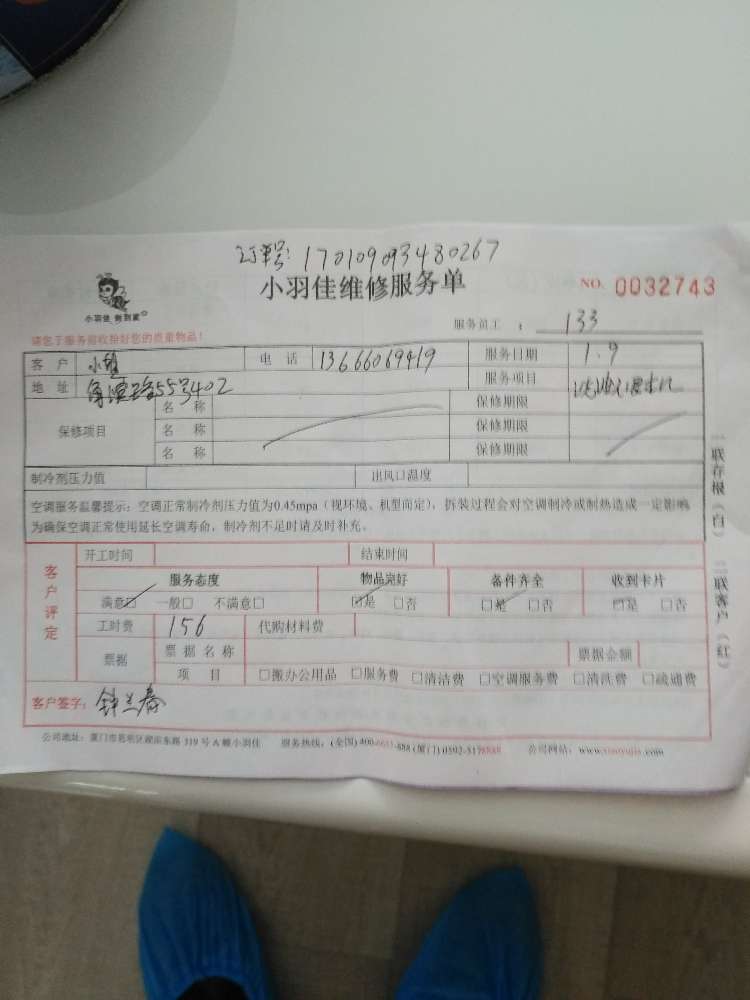 订单号: 170109093480267
小羽佳维修服务单
NO. 0032743
小羽佳 做到家
服务员工 : 133
请您于服务前收拾好您的贵重物品!
客 户 小钟 电 话 13666069419 服务日期 1.9
地 址 55号402 服务项目
保修项目 名 称 保修期限
名 称 保修期限
名 称 保修期限
制冷剂压力值 出风口温度
空调服务温馨提示: 空调正常制冷剂压力值为0.45mpa (视环境、机型而定), 拆装过程会对空调制冷或制热造成一定影响
为确保空调正常使用延长空调寿命, 制冷剂不足时请及时补充。
一联存根(白) 二联客户(红)
客户评定
开工时间 结束时间
服务态度 物品完好 备件齐全 收到卡片
满意□ 一般□ 不满意□ □是 □否 □是 □否 □是 □否
工时费 156 代购材料费
票据 票据名称 票据金额
项 目 □搬办公用品 □服务费 □清洁费 □空调服务费 □清洗费 □疏通费
客户签字: 钟兰春
公司地址: 厦门市思明区 东路 319 号 A 幢小羽佳 服务热线: (全国) 400- -888 (厦门) 0592-5178888 公司网站: www.xiaoyujia.com